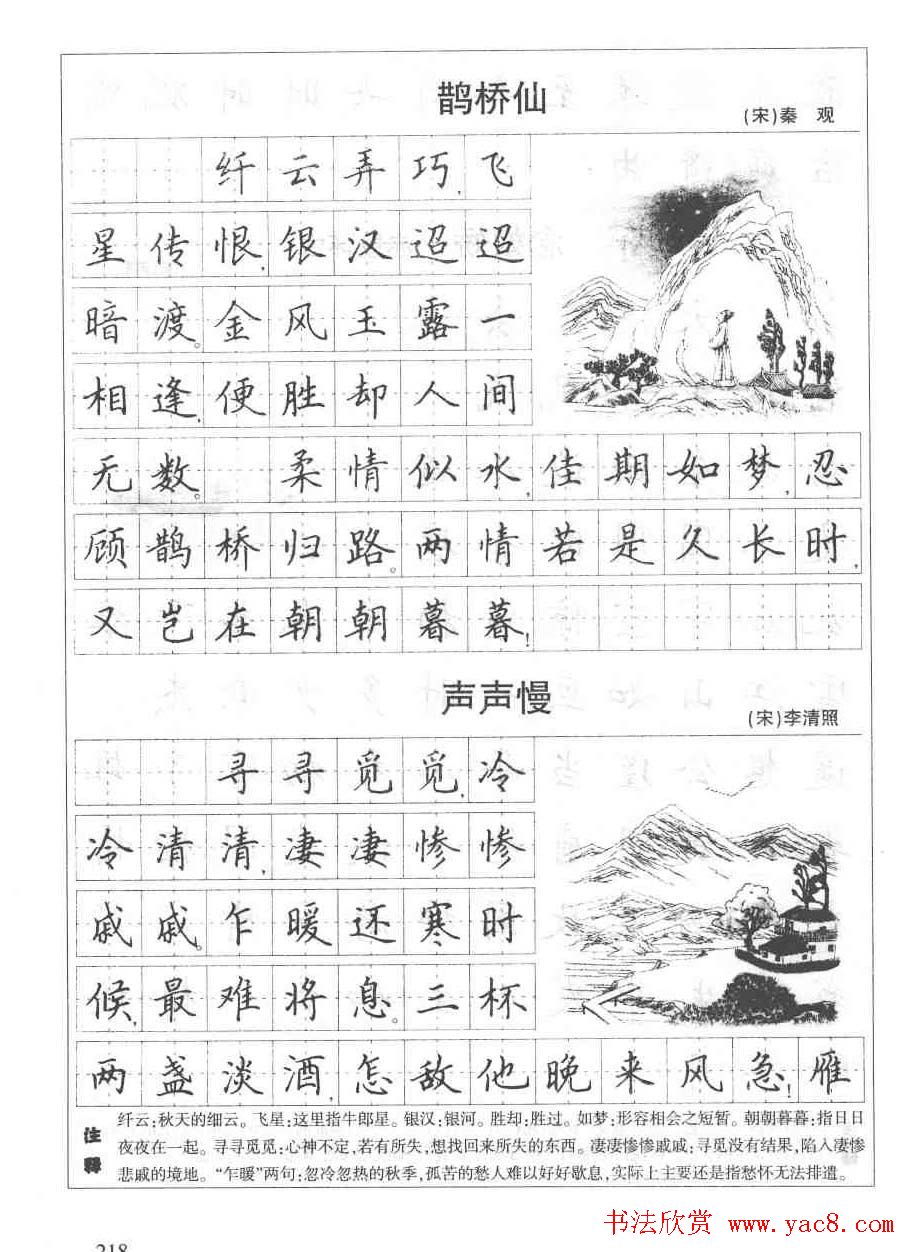 鹊桥仙
(宋)秦 观
纤云弄巧,飞
星传恨,银汉迢迢
暗渡。金风玉露一
相逢,便胜却人间
无数。 柔情似水,佳期如梦,忍
顾鹊桥归路。两情若是久长时,
又岂在朝朝暮暮!
声声慢
(宋)李清照
寻寻觅觅,冷
冷清清,凄凄惨惨
戚戚。乍暖还寒时
候,最难将息。三杯
两盏淡酒,怎敌他晚来风急!雁
注释
纤云:秋天的细云。飞星:这里指牛郎星。银汉:银河。胜却:胜过。如梦:形容相会之短暂。朝朝暮暮:指日日
夜夜在一起。寻寻觅觅:心神不定,若有所失,想找回来所失的东西。凄凄惨惨戚戚:寻觅没有结果,陷入凄惨
悲戚的境地。“乍暖”两句:忽冷忽热的秋季,孤苦的愁人难以好好歇息,实际上主要还是指愁怀无法排遣。
书法欣赏 www.yac8.com
218